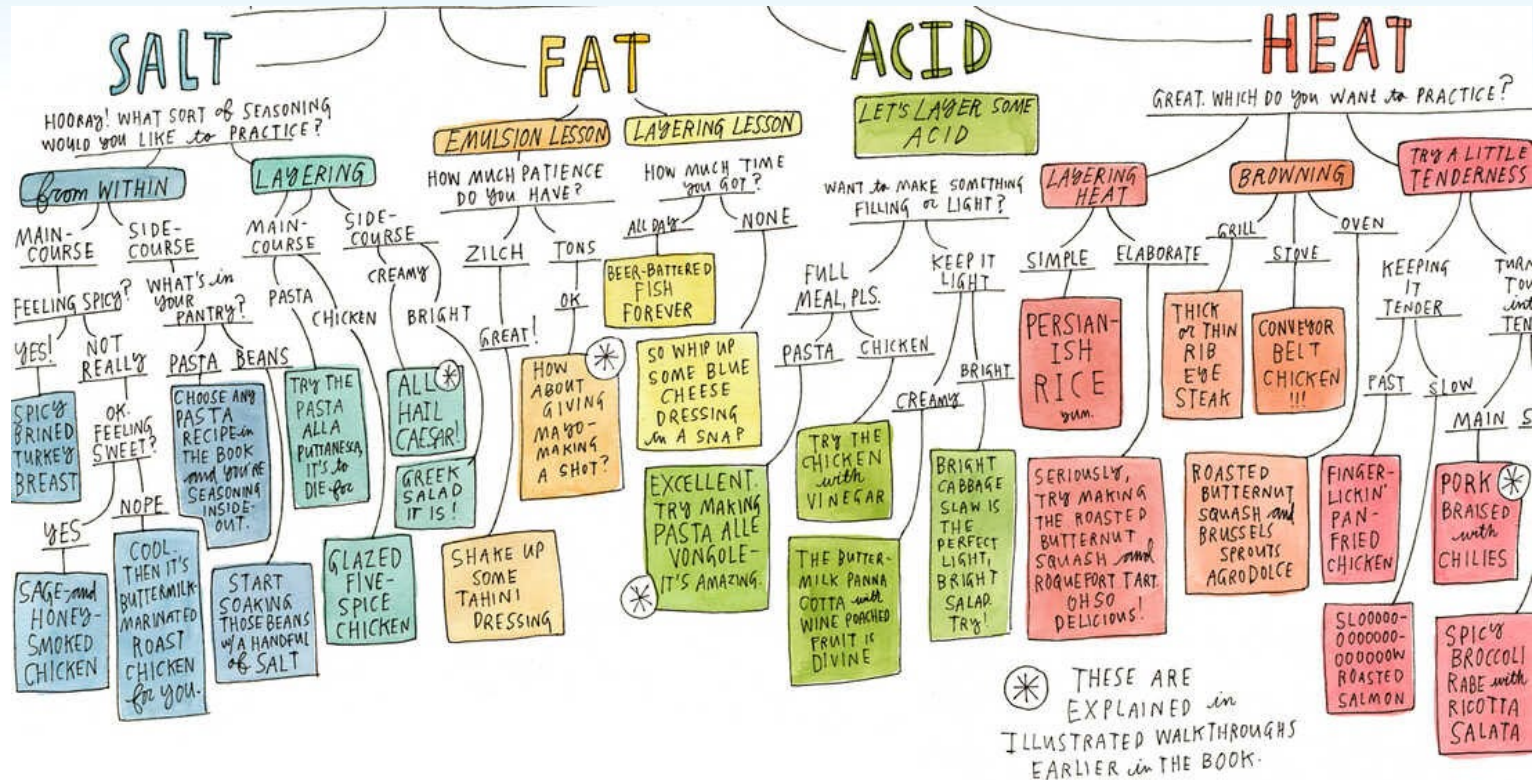 SALT
HOORAY! WHAT SORT of SEASONING
WOULD YOU LIKE to PRACTICE?
from WITHIN
MAIN-
COURSE
FEELING SPICY?
YES!
SPICY
BRINED
TURKEY
BREAST
NOT
REALLY
OK.
FEELING
SWEET?
YES
SAGE-and
HONEY-
SMOKED
CHICKEN
NOPE
COOL.
THEN IT'S
BUTTERMILK-
MARINATED
ROAST
CHICKEN
for YOU.
SIDE-
COURSE
WHAT'S in
YOUR
PANTRY?
PASTA
CHOOSE ANY
PASTA
RECIPE in
THE BOOK
and YOU'RE
SEASONING
INSIDE-
OUT.
BEANS
START
SOAKING
THOSE BEANS
W/A HANDFUL
of SALT
LAYERING
MAIN-
COURSE
PASTA
TRY THE
PASTA
ALLA
PUTTANESCA,
IT'S to
DIE-for
CHICKEN
GLAZED
FIVE-
SPICE
CHICKEN
SIDE-
COURSE
CREAMY
ALL
HAIL
CAESAR!
BRIGHT
GREEK
SALAD
IT IS!
FAT
EMULSION LESSON
HOW MUCH PATIENCE
DO YOU HAVE?
ZILCH
GREAT!
SHAKE UP
SOME
TAHINI
DRESSING
TONS
OK
HOW
ABOUT
GIVING
MAYO-
MAKING
A SHOT?
LAYERING LESSON
HOW MUCH TIME
YOU GOT?
ALL DAY
BEER-BATTERED
FISH
FOREVER
NONE
SO WHIP UP
SOME BLUE
CHEESE
DRESSING
in A SNAP
ACID
LET'S LAYER SOME
ACID
WANT to MAKE SOMETHING
FILLING or LIGHT?
FULL
MEAL, PLS.
PASTA
EXCELLENT.
TRY MAKING
PASTA ALLE
VONGOLE-
IT'S AMAZING.
CHICKEN
TRY THE
CHICKEN
with
VINEGAR
KEEP IT
LIGHT
CREAMY
THE BUTTER-
MILK PANNA
COTTA with
WINE POACHED
FRUIT IS
DIVINE
BRIGHT
BRIGHT
CABBAGE
SLAW IS
THE
PERFECT
LIGHT,
BRIGHT
SALAD.
TRY!
HEAT
GREAT. WHICH DO YOU WANT to PRACTICE?
LAYERING
HEAT
SIMPLE
PERSIAN-
ISH
RICE
yum.
ELABORATE
SERIOUSLY,
TRY MAKING
THE ROASTED
BUTTERNUT
SQUASH and
ROQUEFORT TART.
OH SO
DELICIOUS!
BROWNING
GRILL
THICK
or THIN
RIB
EYE
STEAK
STOVE
CONVEYOR
BELT
CHICKEN
!!!
OVEN
ROASTED
BUTTERNUT
SQUASH and
BRUSSELS
SPROUTS
AGRODOLCE
TRY A LITTLE
TENDERNESS
KEEPING
IT
TENDER
FAST
FINGER-
LICKIN'
PAN-
FRIED
CHICKEN
SLOW
SLOOOOO-
OOOOOOO-
OOOOOOW
ROASTED
SALMON
TURN
TOU
int
TEN
MAIN
S
PORK
BRAISED
with
CHILIES
SPICY
BROCCOLI
RABE with
RICOTTA
SALATA
THESE ARE
EXPLAINED in
ILLUSTRATED WALKTHROUGHS
EARLIER in THE BOOK.